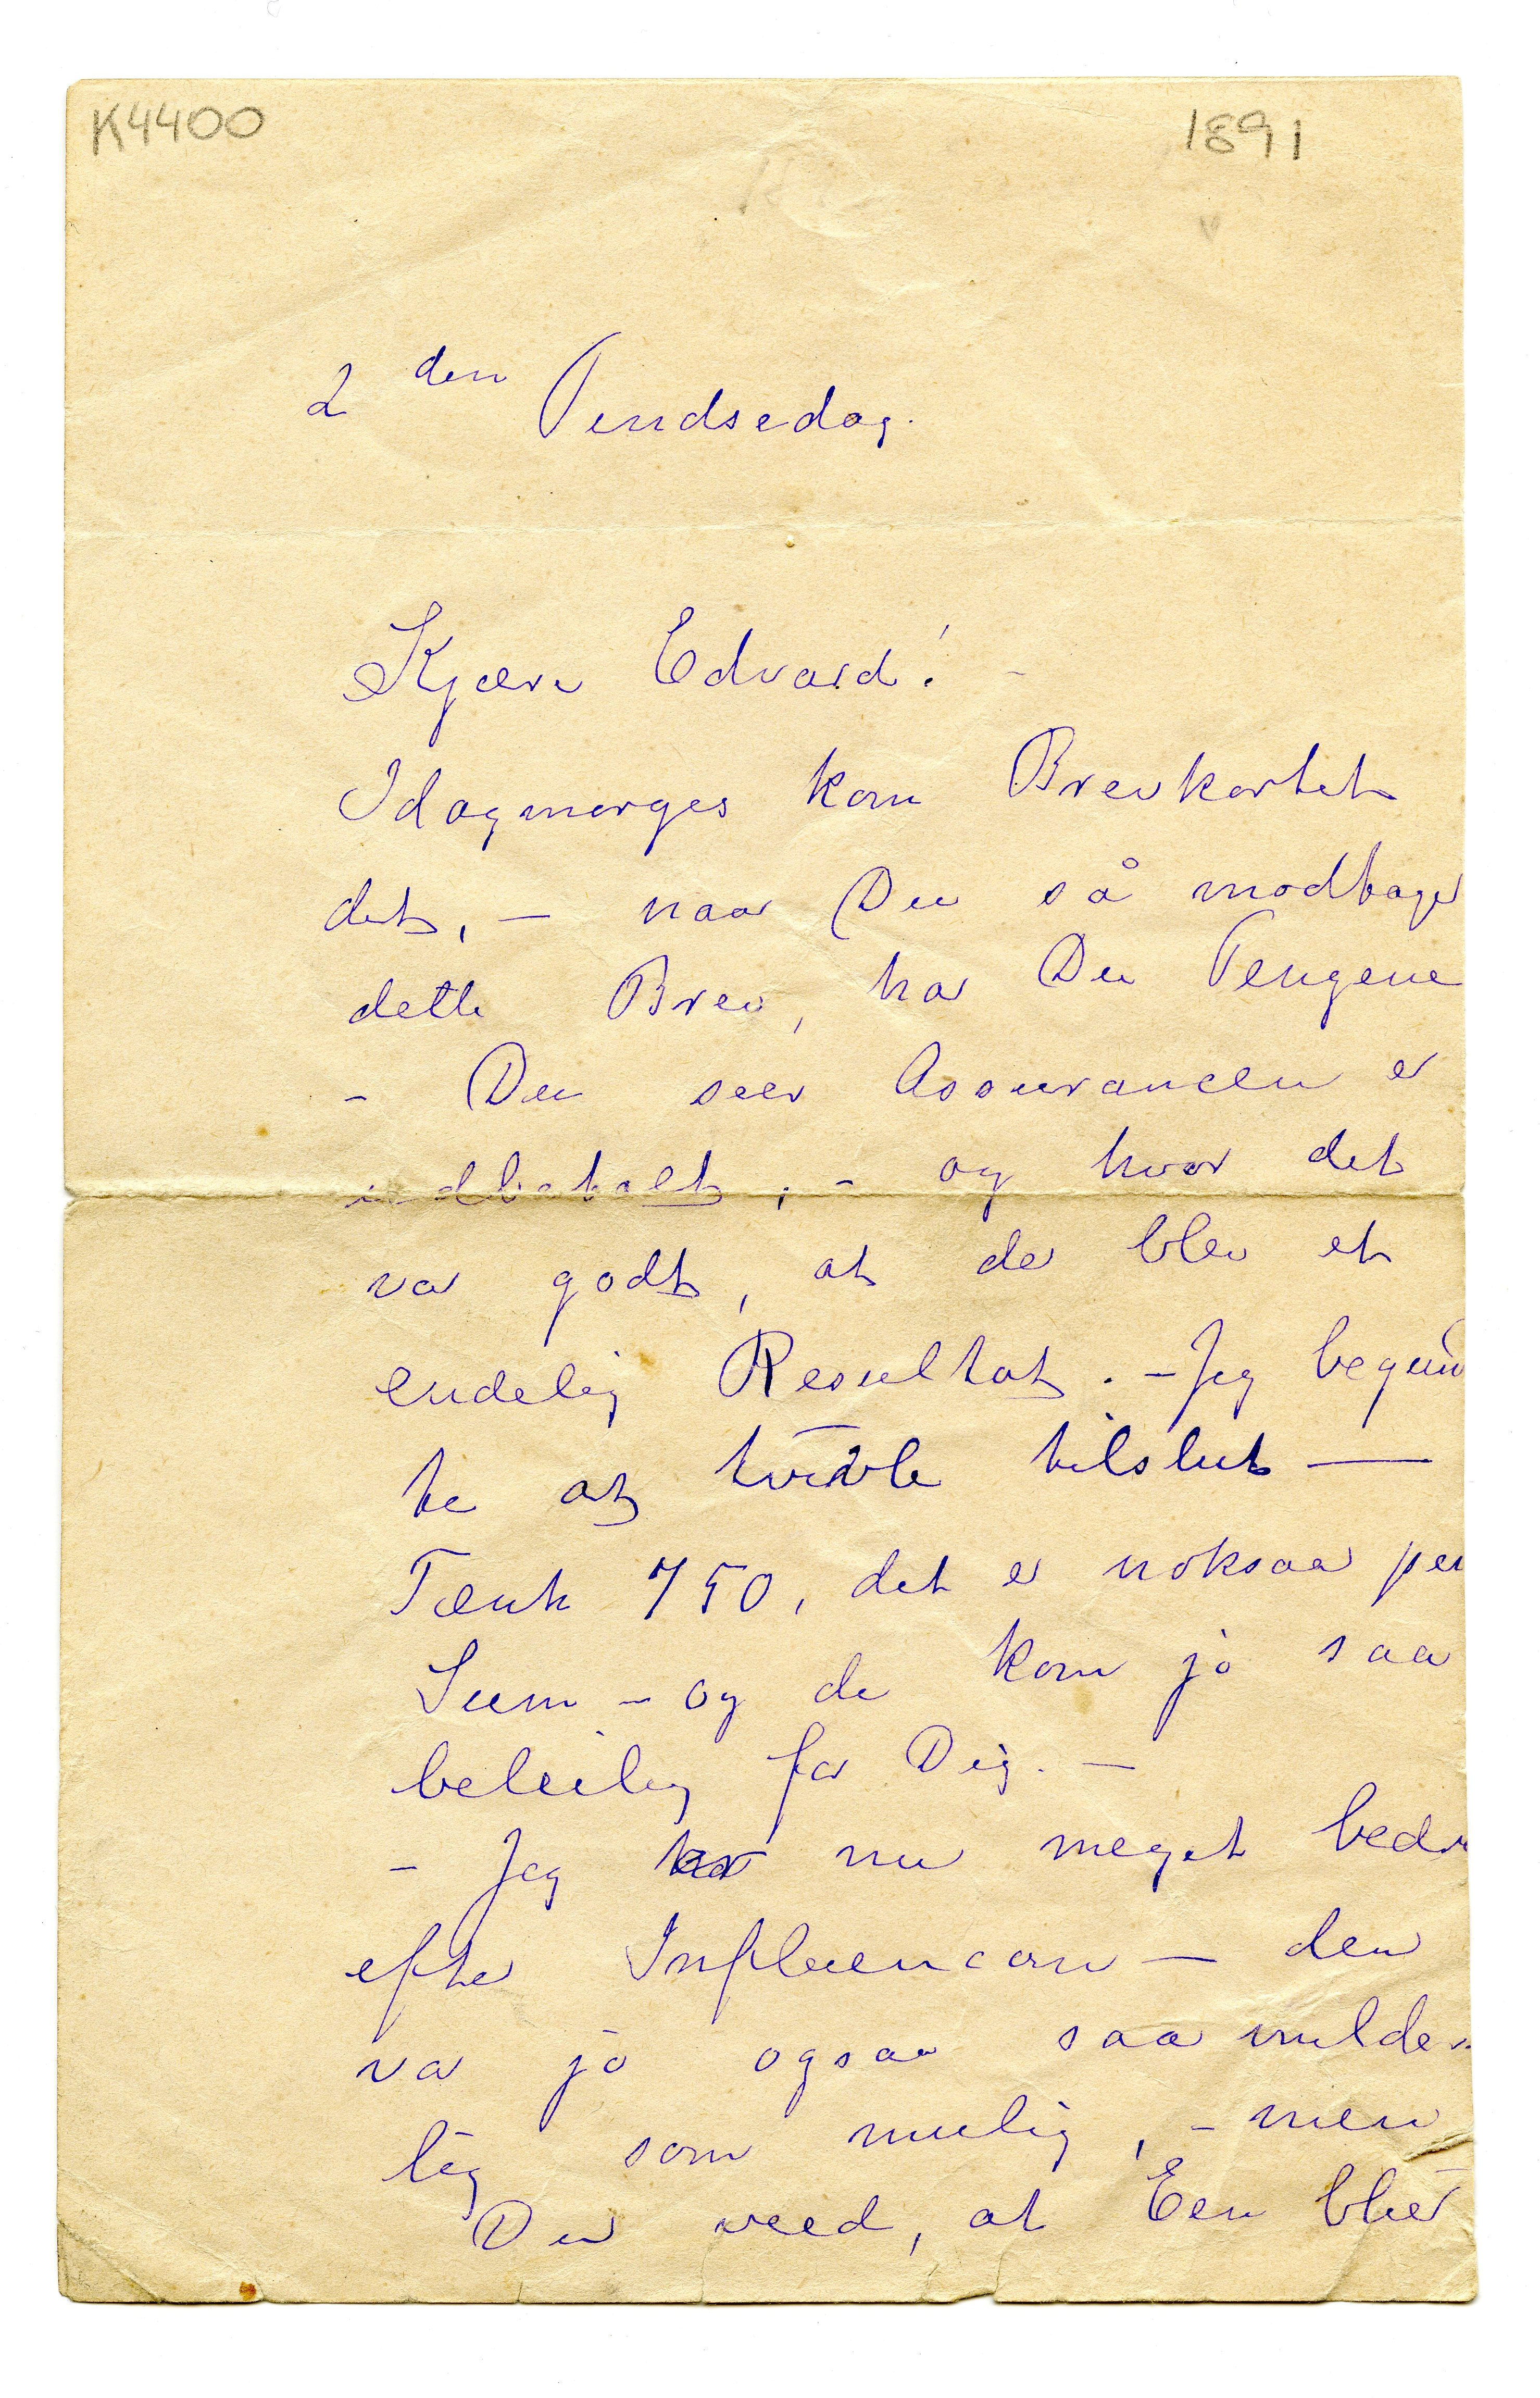 K4400 1891
2 den Pindsedag.
Kjære Edvard! -
Idagmorges kom Brevkortet
dit, – naar Du så modtager
dette Brev, har Du Pengene
- Du seer Assurancen er
indbetalt, - og hvor det
var godt, at der blev et
endelig Resultat. - Jeg begün
te at tvivle tilslut —
Tænk 750, det er noksaa pen
Sum - og de kom jo saa
beleilig for Dig. —
- Jeg er nu meget bedre
efter Influencan — den
var jo ogsaa saa milde
lig som mulig, - men
Du veed, at Een blier